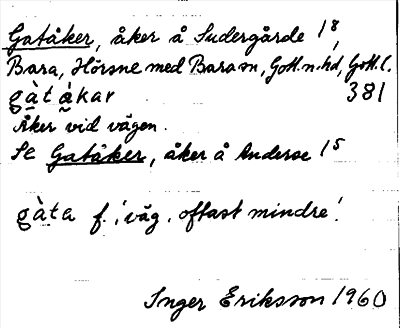 Gatåker, åker å Sudergårde 1⁸,
Bara, Hörsne med Bara sn, Gotl. n. hd, Gotl. l.
gàtåkar 381
Åker vid vägen.
Se Gatåker, åker å Anderse 1⁵
gàta f. 'väg, oftast mindre'.
Inger Eriksson 1960